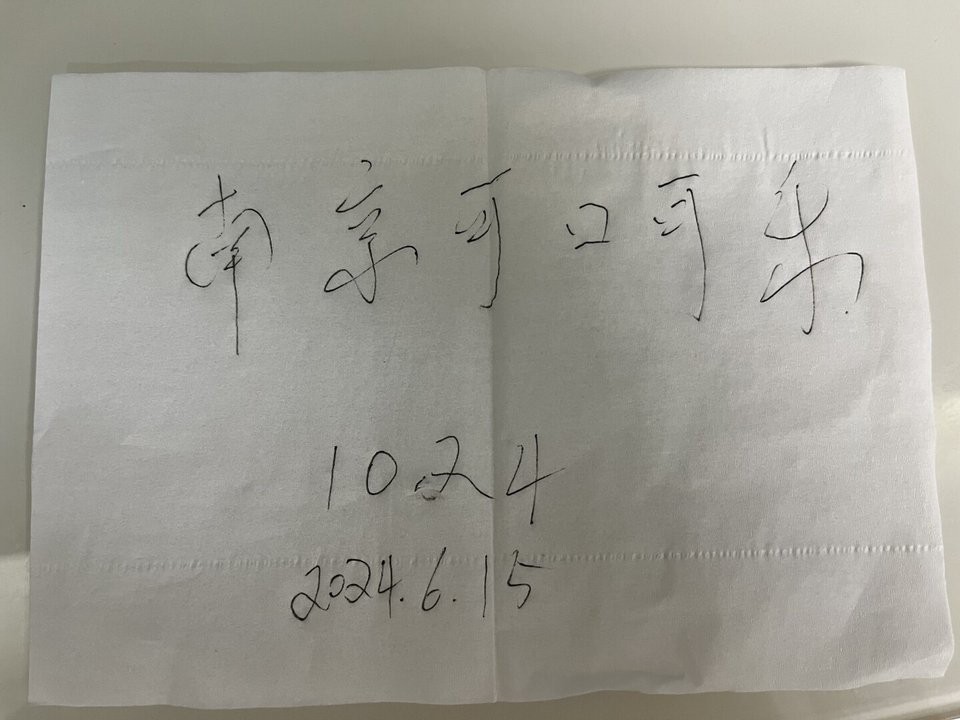 南京可口可乐
10.24
2024.6.15